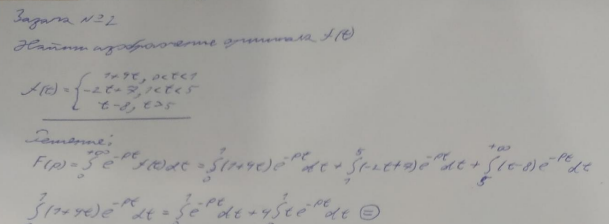 Задача №2
Найти изображение оригинала f(t)
1+4t, 0<t<1
f(t) = { -2t+7, 1<t<5
t-8, t>5
Решение:
F(p) = ∫₀^{+∞} e^{-pt} f(t)dt = ∫₀^1 (1+4t)e^{-pt} dt + ∫₁^5 (-2t+7)e^{-pt} dt + ∫₅^{+∞} (t-8)e^{-pt} dt
∫₀^1 (1+4t)e^{-pt} dt = ∫₀^1 e^{-pt} dt + 4∫₀^1 te^{-pt} dt =